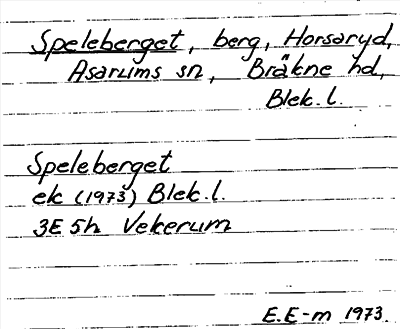 Speleberget, berg, Horsaryd,
Asarums sn, Bräkne hd,
Blek. l.
Speleberget
ek (1973) Blek. l.
3E 5h Vekerum
E.E-m 1973.